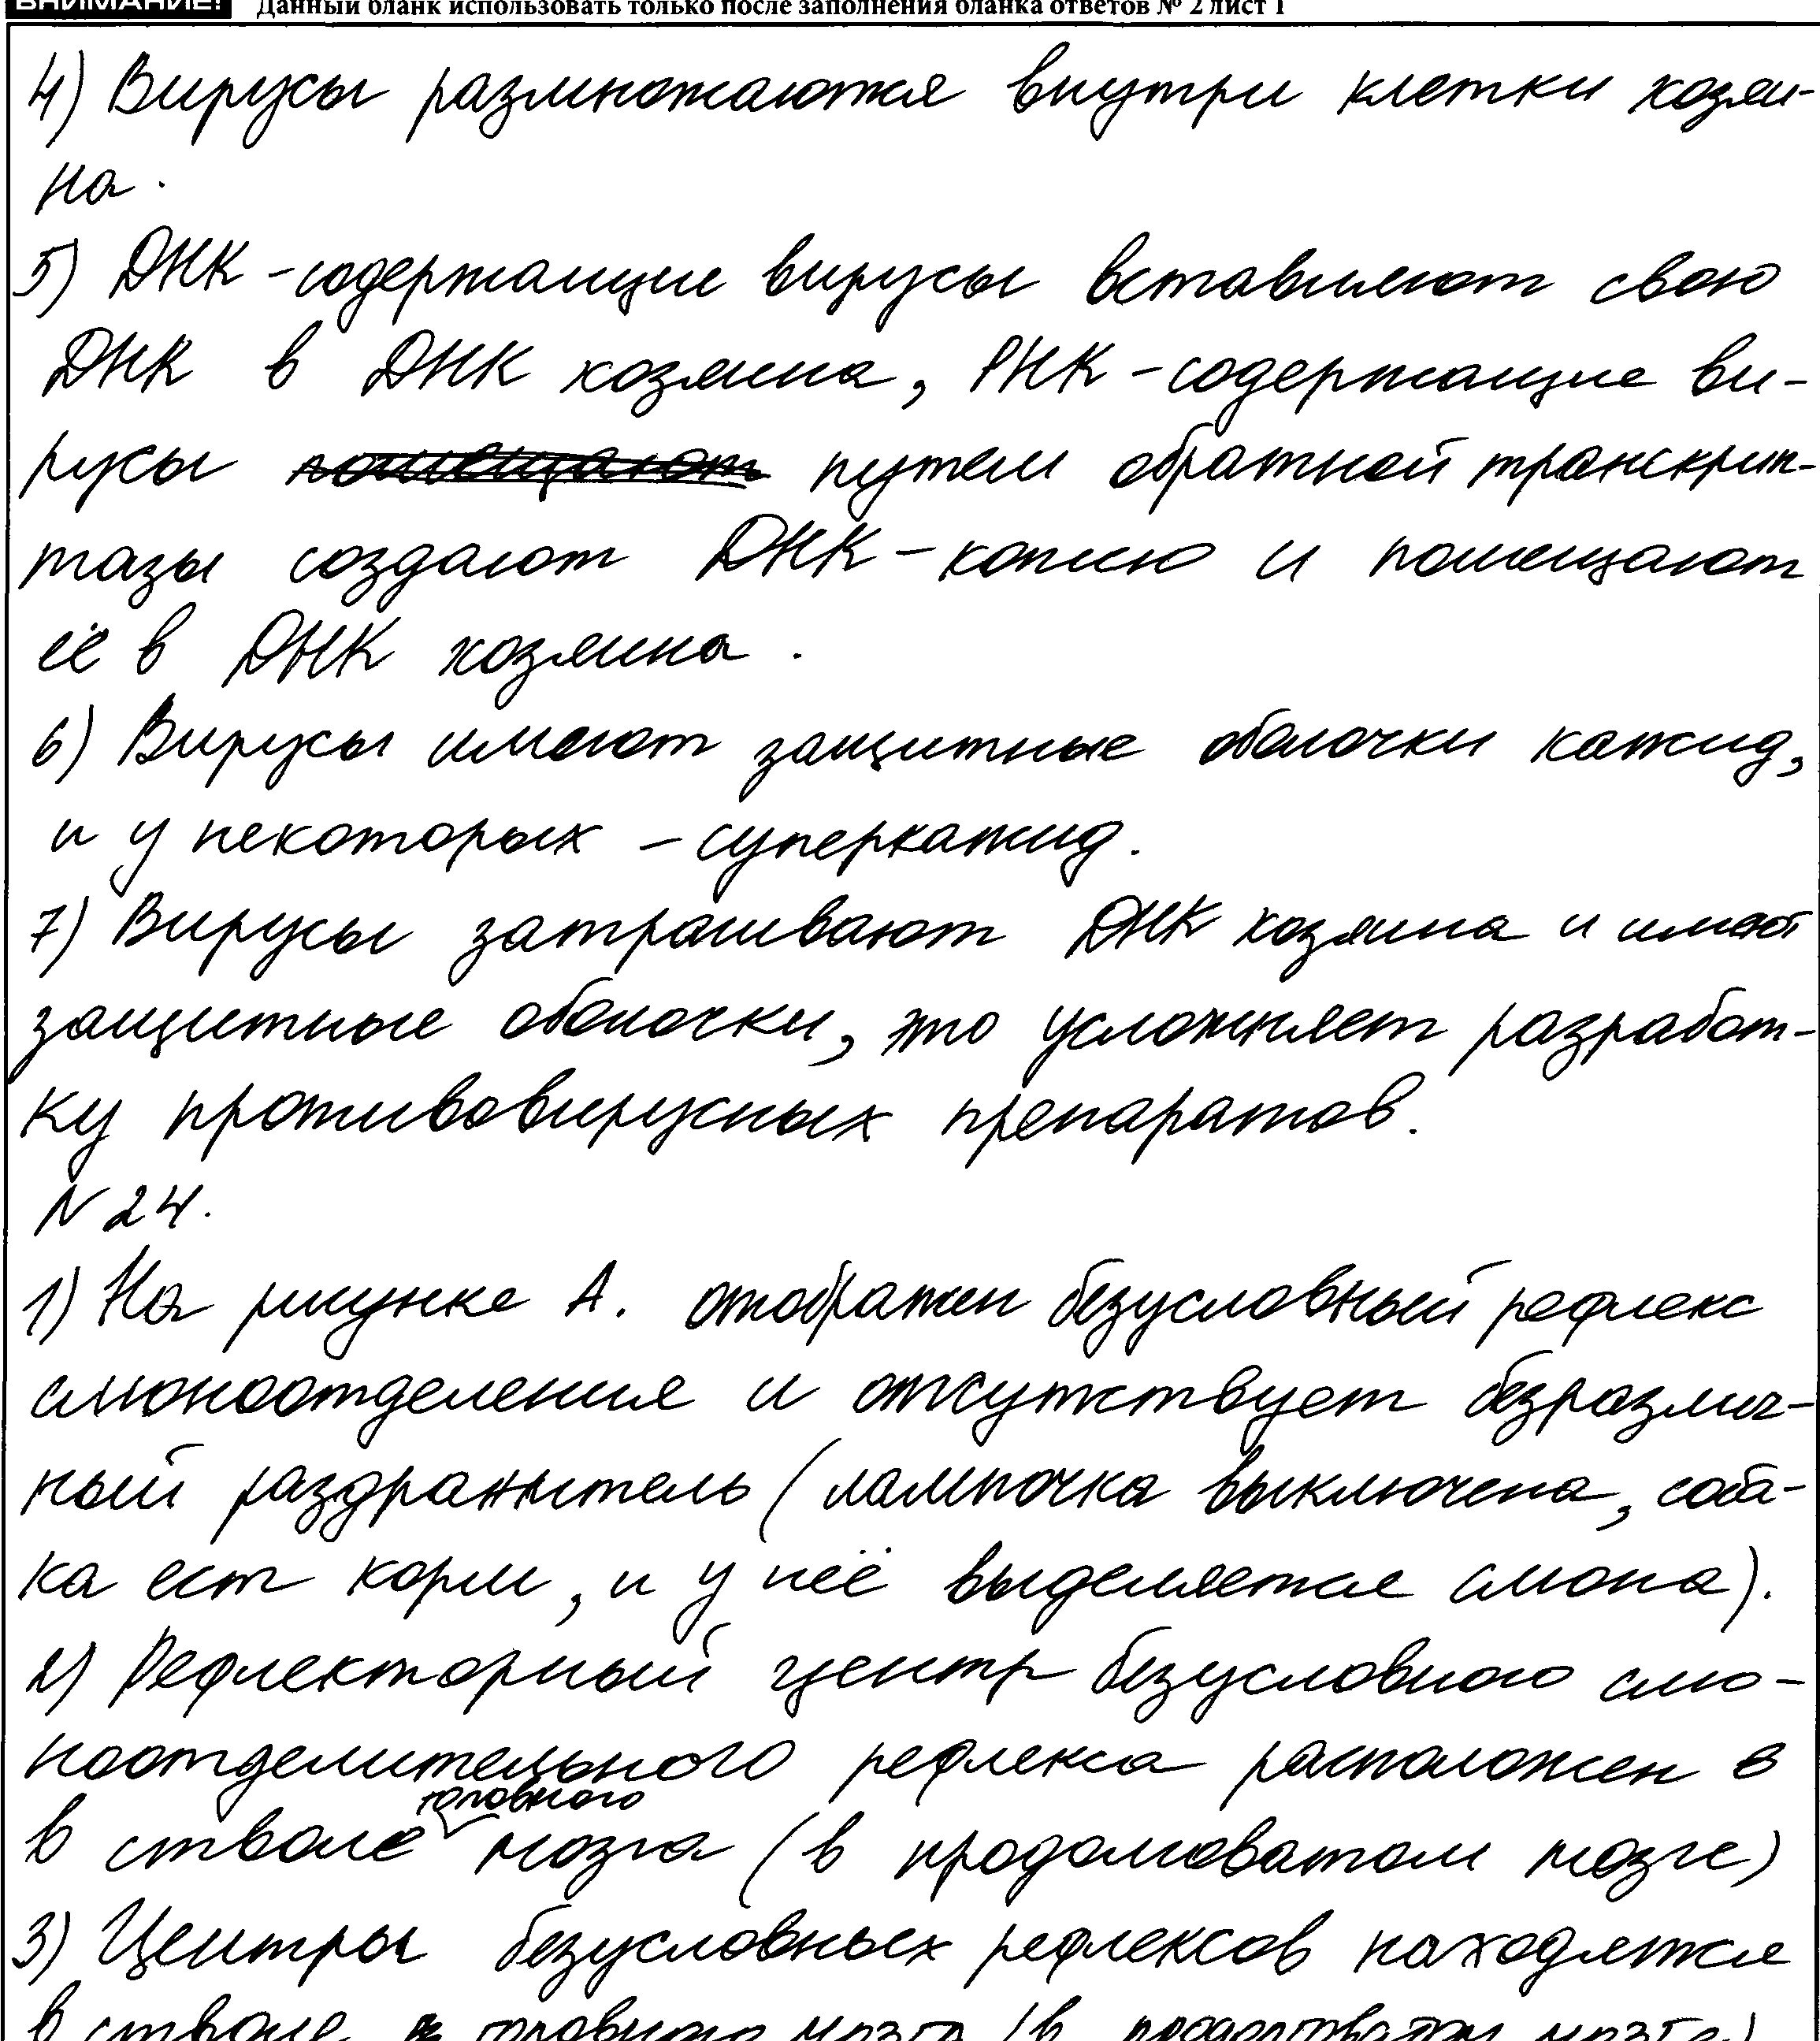 ВНИМАНИЕ! Данный бланк использовать только после заполнения бланка ответов № 2 лист 1
4) Вирусы размножаются внутри клетки хозяи-
на.
5) ДНК-содержащие вирусы вставляют свою
ДНК в ДНК хозяина, РНК-содержащие ви-
русы помещают путем обратной транскрип-
тазы создают ДНК-копию и помещают
её в ДНК хозяина.
6) Вирусы имеют защитные оболочки капсид,
и у некоторых - суперкапсид.
7) Вирусы затрагивают ДНК хозяина и имеют
защитные оболочки, это усложняет разработ-
ку противовирусных препаратов.
N 24.
1) На рисунке А. отображен безусловный рефлекс
слюноотделения и отсутствует безразлич-
ный раздражитель (лампочка выключена, соба-
ка ест корм, и у неё выделяется слюна).
2) Рефлекторный центр безусловного слю-
ноотделительного рефлекса расположен в
в стволе головного мозга (в продолговатом мозге)
3) Центры безусловных рефлексов находятся
в стволе головного мозга (в продолговатом мозге)